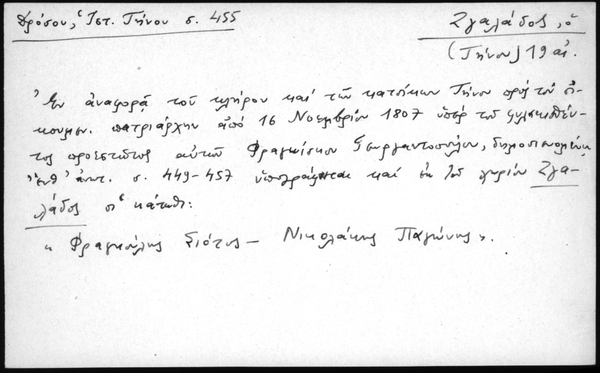 Δρόσου, Ἱστ. Τήνου σ. 455
Σγαλάδος, ὁ
(Τήνου) 19 αἰ.
Ἐν ἀναφορᾷ τοῦ κλήρου καὶ τῶν κατοίκων Τήνου πρὸς τὸν Οἰ-
κουμεν. πατριάρχην ἀπὸ 16 Νοεμβρίου 1807 ὑπὲρ τοῦ φυλακισθέν-
τος προεστῶτος αὐτῶν Φραγκίσκου Γεωργαντοπούλου, δημοσιευομένῃ
ἔνθ' ἀνωτ. σ. 449-457 ὑπογράφονται καὶ ἐκ τοῦ χωρίου Σγα-
λάδος οἱ κάτωθι:
« Φραγκούλης Σιότος – Νικολάκης Παγώνης ».